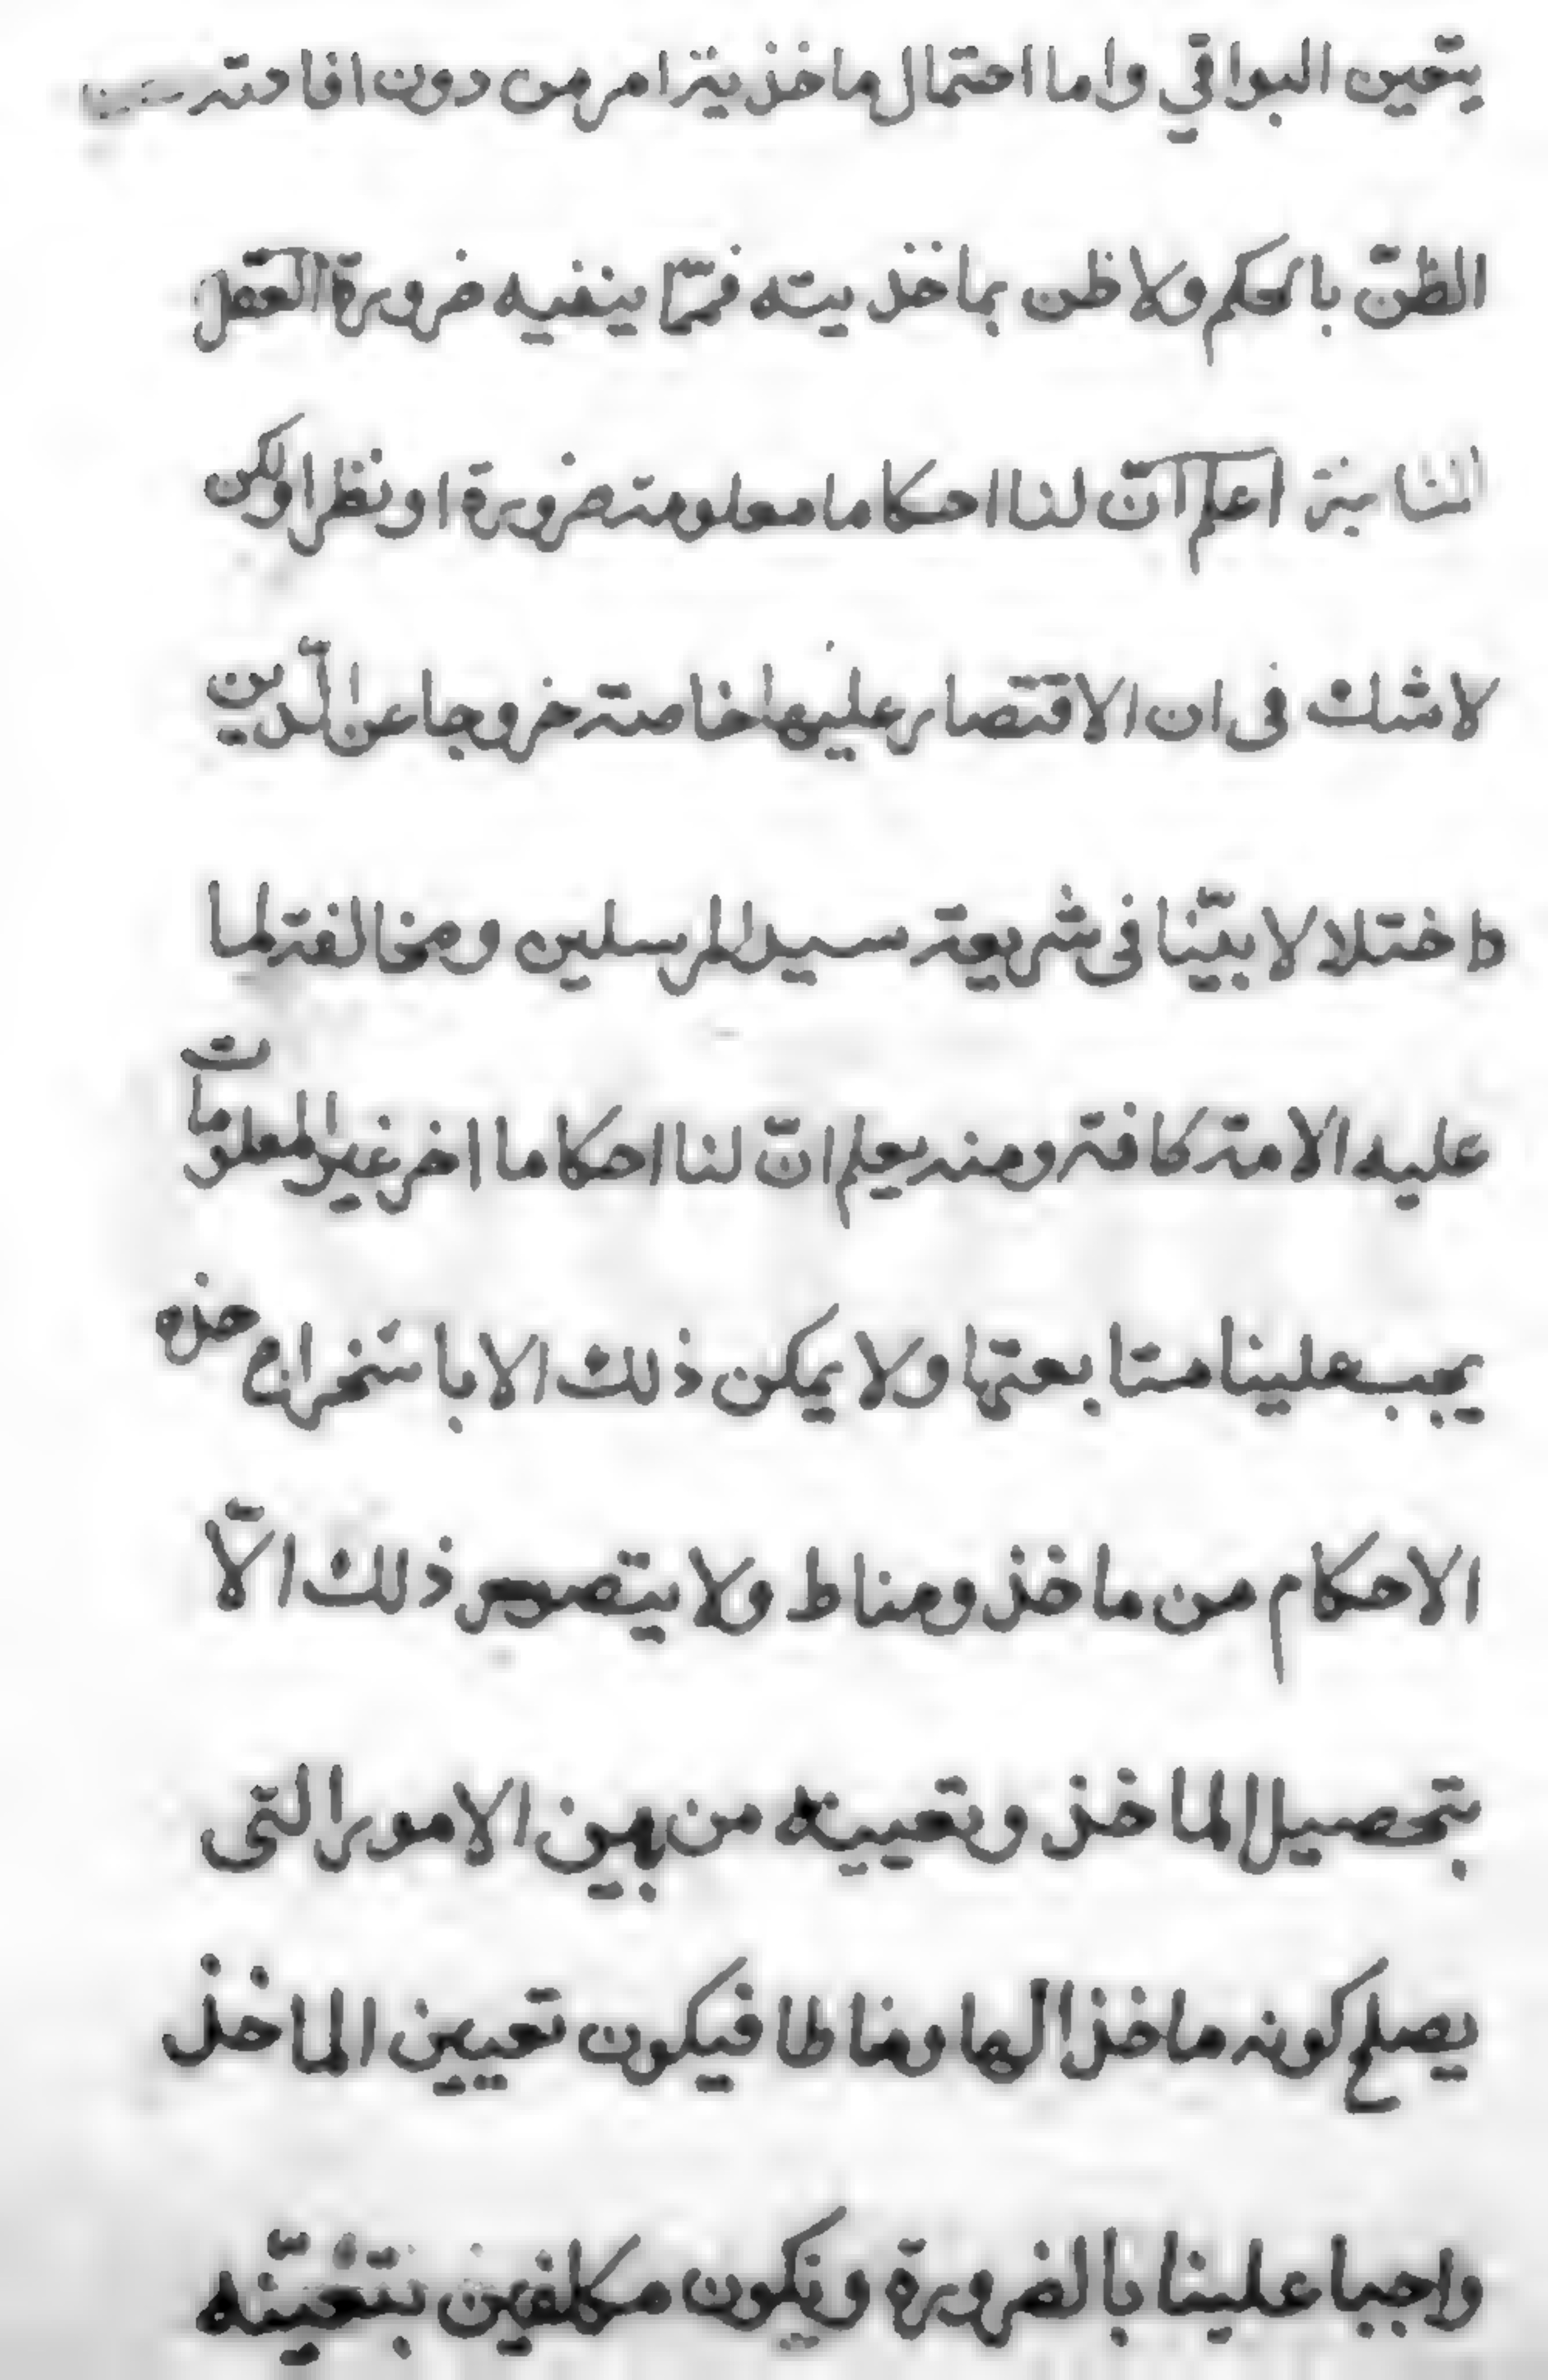 يتعين البواقي واما احتمال ماخذية امر من دون افادته
الظنّ بالحكم ولا ظن بماخذيته فممّا ينفيه ضرورة العقل
الثانية اعلم انّ لنا احكاما معلومة ضرورة او نظرا ولكن
لا شك فى ان الاقتصار عليها خاصة خروجا عن الدّين
واختلالا بيّنا فى شريعة سيد المرسلين ومخالفة لما
عليه الامة كافة ومنه يعلم انّ لنا احكاما اخر غير المعلومات
يجب علينا متابعتها ولا يمكن ذلك الا باستخراج هذه
الاحكام من ماخذ ومناط ولا يتصور ذلك الاّ
بتحصيل الماخذ وتعيينه من بين الامور التى
يصلح كونه ماخذا لها ومناطا فيكون تعيين الماخذ
واجبا علينا بالضرورة ونكون مكلفين بتعيّنه